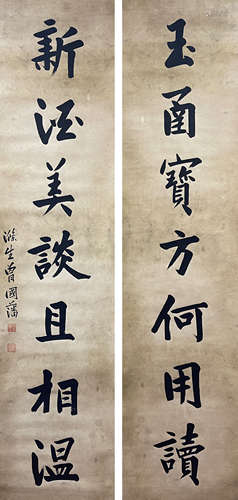 玉函寶方何用讀
新酒美談且相溫
滌生曾國藩